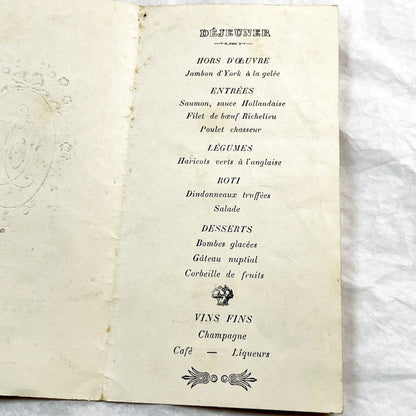 DÉJEUNER
HORS D'ŒUVRE
Jambon d'York à la gelée
ENTRÉES
Saumon, sauce Hollandaise
Filet de bœuf Richelieu
Poulet chasseur
LÉGUMES
Haricots verts à l'anglaise
ROTI
Dindonneaux truffées
Salade
DESSERTS
Bombes glacées
Gâteau nuptial
Corbeille de fruits
VINS FINS
Champagne
Café — Liqueurs